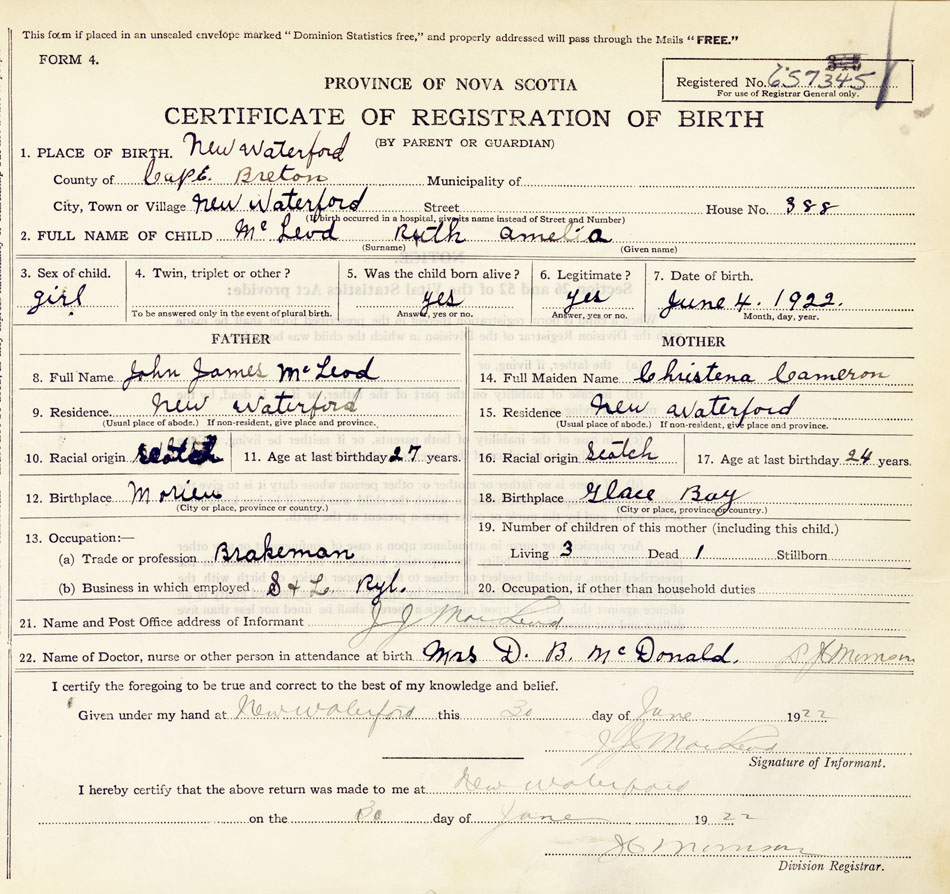 This form if placed in an unsealed envelope marked "Dominion Statistics free," and properly addressed will pass through the Mails "FREE."
FORM 4.
PROVINCE OF NOVA SCOTIA
Registered No. 657345
For use of Registrar General only.
CERTIFICATE OF REGISTRATION OF BIRTH
(BY PARENT OR GUARDIAN)
1. PLACE OF BIRTH. New Waterford
County of Cape Breton Municipality of
City, Town or Village New Waterford Street House No. 388
(If birth occurred in a hospital, give its name instead of Street and Number)
2. FULL NAME OF CHILD McLeod Ruth Amelia
(Surname) (Given name)
3. Sex of child. 4. Twin, triplet or other? 5. Was the child born alive? 6. Legitimate? 7. Date of birth.
girl yes yes June 4. 1922.
To be answered only in the event of plural birth. Answer, yes or no. Answer, yes or no. Month, day, year.
FATHER MOTHER
8. Full Name John James McLeod 14. Full Maiden Name Christena Cameron
9. Residence New Waterford 15. Residence New Waterford
(Usual place of abode.) If non-resident, give place and province. (Usual place of abode.) If non-resident, give place and province.
10. Racial origin Scotch 11. Age at last birthday 27 years. 16. Racial origin Scotch 17. Age at last birthday 24 years.
12. Birthplace Morien 18. Birthplace Glace Bay
(City or place, province or country.) (City or place, province or country.)
13. Occupation:— 19. Number of children of this mother (including this child.)
(a) Trade or profession Brakeman Living 3 Dead 1 Stillborn
(b) Business in which employed S & L Ryl. 20. Occupation, if other than household duties
21. Name and Post Office address of Informant J J MacLeod
22. Name of Doctor, nurse or other person in attendance at birth Mrs D. B. McDonald.
I certify the foregoing to be true and correct to the best of my knowledge and belief.
Given under my hand at New Waterford this 30 day of June 1922
J J MacLeod
Signature of Informant.
I hereby certify that the above return was made to me at New Waterford
on the 30 day of June 1922
Morrison
Division Registrar.